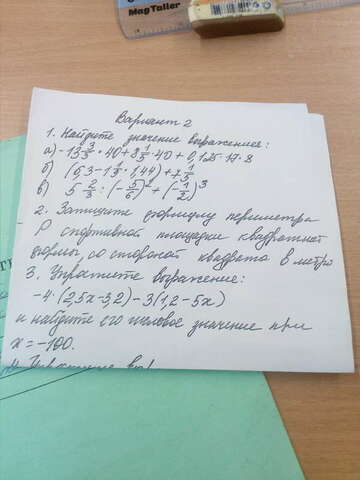 MagTaller
Вариант 2
1. Найдите значение выражения:
а) -13 3/5 · 40 + 8 1/5 · 40 + 0,125 · 17 · 8
б) (6,3 - 1 1/3 · 1,44) + 7 1/3
в) 5 2/3 : (-5/6)² + (-1/2)³
2. Запишите формулу периметра
Р спортивной площадки квадратной
формы, со стороной квадрата в метро
3. Упростите выражение:
-4 · (2,5х - 3,2) - 3(1,2 - 5х)
и найдите его числовое значение при
х = -100.